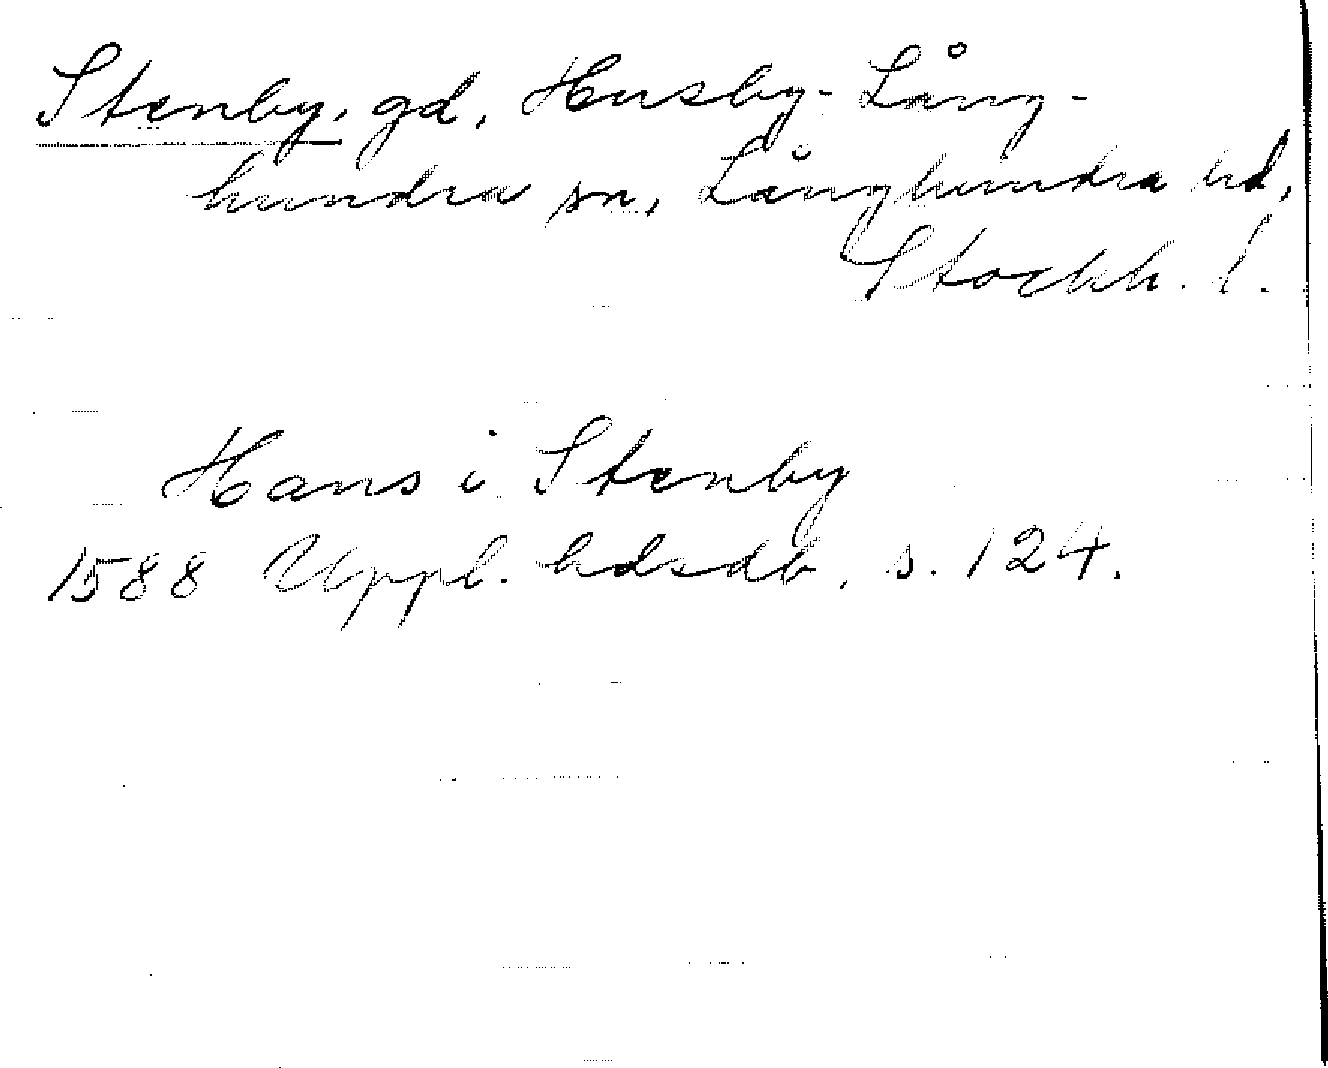 Stenby, gd, Husby-Lång-
hundra sn, Långhundra hd,
Stockh. l.
Hans i Stenby
1588 Uppl. hdsdb. s. 124.